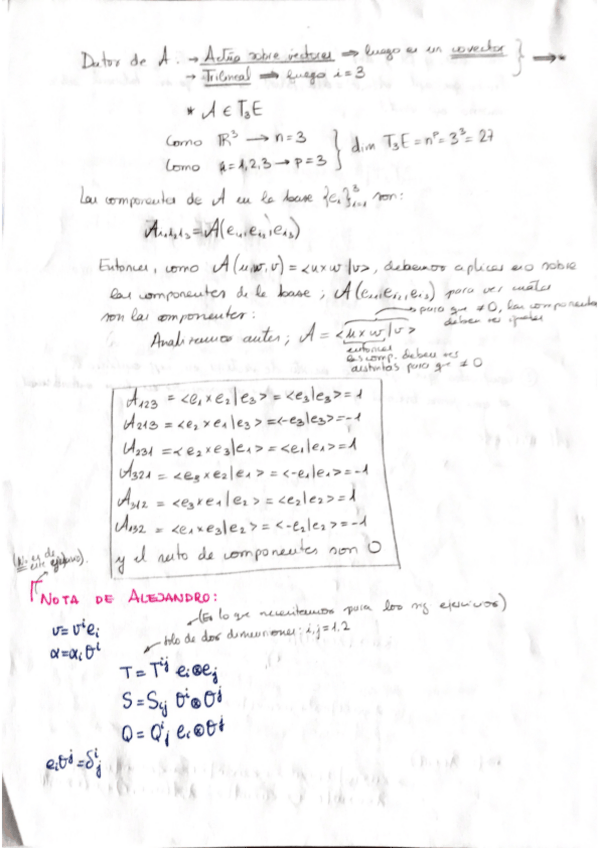 Dator de A: → Acción sobre vectores ⇒ luego es un covector
→ Trilineal ⇒ luego i=3
} → *
* A ∈ T₃E
Como ℝ³ → n=3
Como i=1,2,3 → p=3
} dim T₃E = nᵖ = 3³ = 27
Las componentes de A en la base {eᵢ}³ᵢ₌₁ son:
Ai₁i₂i₃ = A(ei₁, ei₂, ei₃)
Entonces, como A(u,w,v) = <u×w|v>, debemos aplicar eso sobre
las componentes de la base; A(ei₁, ei₂, ei₃) para ver cuales
son las componentes:
→ para que ≠0, las componentes
deben ser iguales
Analicemos antes; A = <u×w|v>
entonces
las comp. deben ser
distintas para que ≠0
A₁₂₃ = <e₁×e₂|e₃> = <e₃|e₃> = 1
A₂₁₃ = <e₂×e₁|e₃> = <-e₃|e₃> = -1
A₂₃₁ = <e₂×e₃|e₁> = <e₁|e₁> = 1
A₃₂₁ = <e₃×e₂|e₁> = <-e₁|e₁> = -1
A₃₁₂ = <e₃×e₁|e₂> = <e₂|e₂> = 1
A₁₃₂ = <e₁×e₃|e₂> = <-e₂|e₂> = -1
y el resto de componentes son 0
(No es de
este ejercicio).
NOTA DE ALEJANDRO:
(Es lo que necesitamos para los ejercicios)
v = vⁱeᵢ
solo de dos dimensiones: i,j = 1,2
α = αᵢθⁱ
T = Tⁱʲ eᵢ⊗eⱼ
S = Sᵢⱼ θⁱ⊗θʲ
Q = Qⁱⱼ eᵢ⊗θʲ
eᵢθʲ = δⁱⱼ